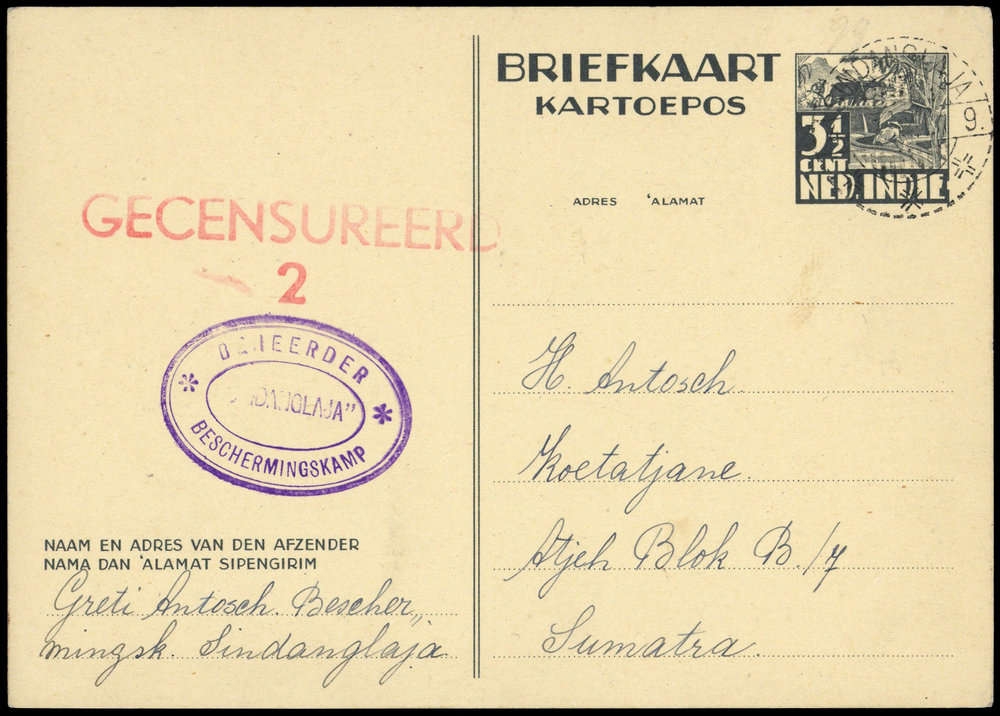 BRIEFKAART
KARTOEPOS
SINDANGLAJA
9.
3½
CENT
NED. INDIE
ADRES 'ALAMAT
GECENSUREERD
2
BEHEERDER
"SINDANGLAJA"
BESCHERMINGSKAMP
H. Antosch
Koetatjane.
Atjeh Blok B./7
Sumatra.
NAAM EN ADRES VAN DEN AFZENDER
NAMA DAN 'ALAMAT SIPENGIRIM
Greti Antosch. Bescher„
mingsk. Sindanglaja